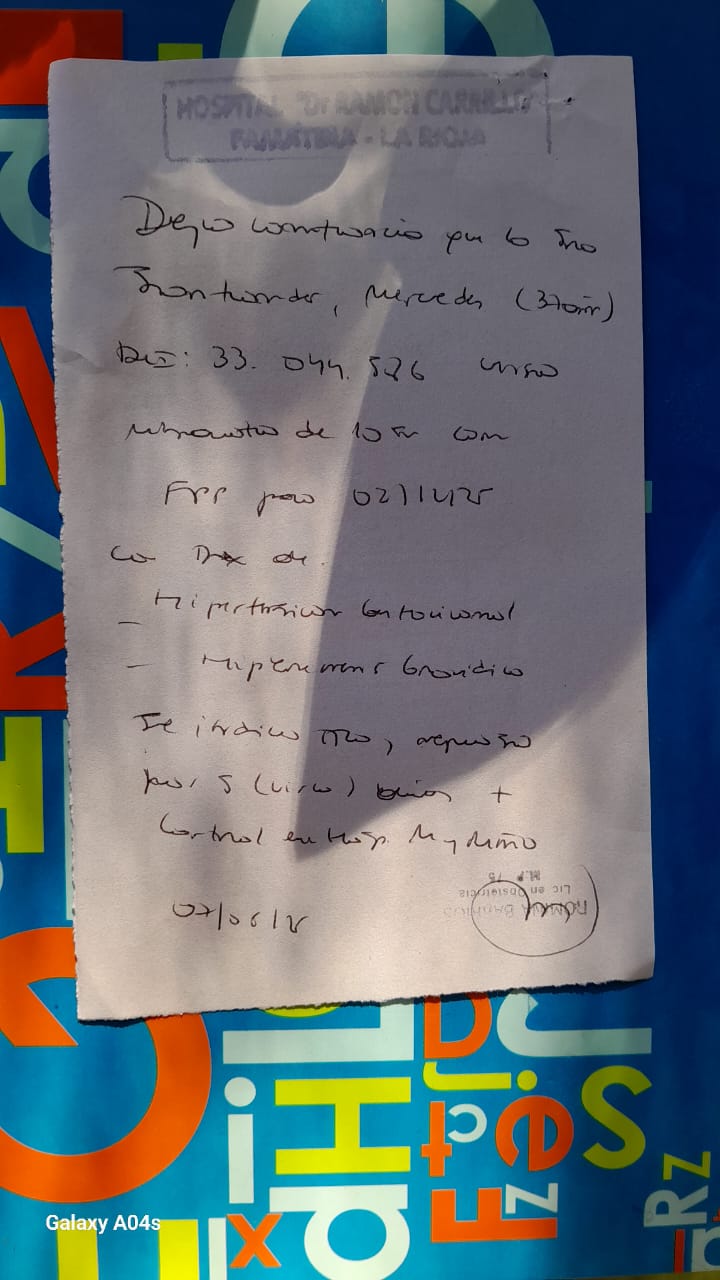 HOSPITAL "Dr RAMON CARRILLO"
FAMATINA - LA RIOJA
Dejo constancia que la Sra
, Mercedes (37 años)
DNI: 33. 044. 526 cursa
de 10 con
FPP para 02/12/25
con Dx de:
- Hipertensión Gestacional
- Hiperemesis Gravídica
Se indica TTO, reposo
por 5 (cinco) días +
Control en Hosp. M y Niño
07/05/25
Lic en Obstetricia
M.P. 75
Galaxy A04s